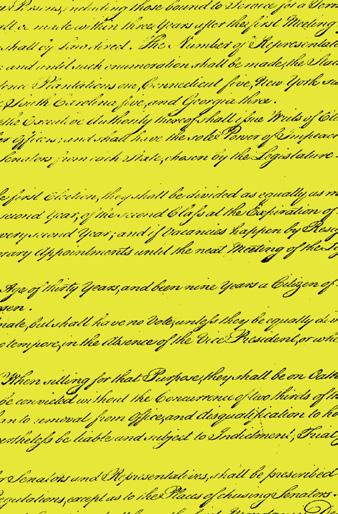 Persons, including those bound to Service for a Term
shall be made within three Years after the first Meeting
shall by Law direct. The Number of Representatives
and until such enumeration shall be made, the State
Plantations one, Connecticut five, New York six
South Carolina five, and Georgia three.
the Executive Authority thereof shall issue Writs of Elec
Officers; and shall have the sole Power of Impeach
Senators from each State, chosen by the Legislature
first Election, they shall be divided as equally as m
second Year, of the second Class at the Expiration of
every second Year; and if Vacancies happen by Resig
Appointments until the next Meeting of the Le
Age of thirty Years, and been nine Years a Citizen of
sen.
nate, but shall have no Vote, unless they be equally div
tempore, in the Absence of the Vice President, or whe
When sitting for that Purpose, they shall be on Oath
be convicted without the Concurrence of two thirds of th
than to removal from Office, and disqualification to ho
nevertheless be liable and subject to Indictment, Trial
Senators and Representatives, shall be prescribed
Regulations, except as to the Places of chusing Senators.